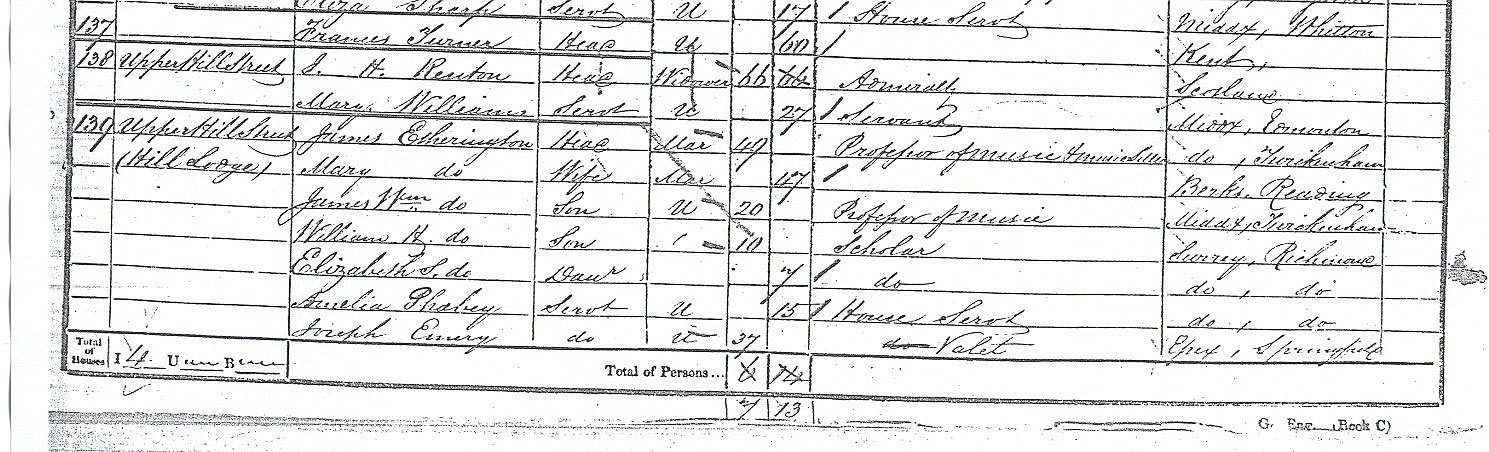 Eliza Sharp Servt U 17 House Servt Middx, Whitton
137 Frances Turner Head U 60 Kent,
138 Upper Hill Street J. H. Renton Head Widower 66 66 Admiralty Scotland
Mary Williams Servt U 27 Servant Middx, Edmonton
139 Upper Hill Street James Etherington Head Mar 49 Professor of music & music Seller do, Twickenham
(Hill Lodge) Mary do Wife Mar 47 Berks, Reading
James Wm do Son U 20 Professor of Music Middx, Twickenham
William H. do Son 10 Scholar Surrey, Richmond
Elizabeth S. do Daur 7 do do, do
Amelia Servt U 15 House Servt do, do
Joseph Emery do U 37 do Valet Essex, Springfield
Total of Houses I 4 U B Total of Persons... 6 14
7 13
(Book C)